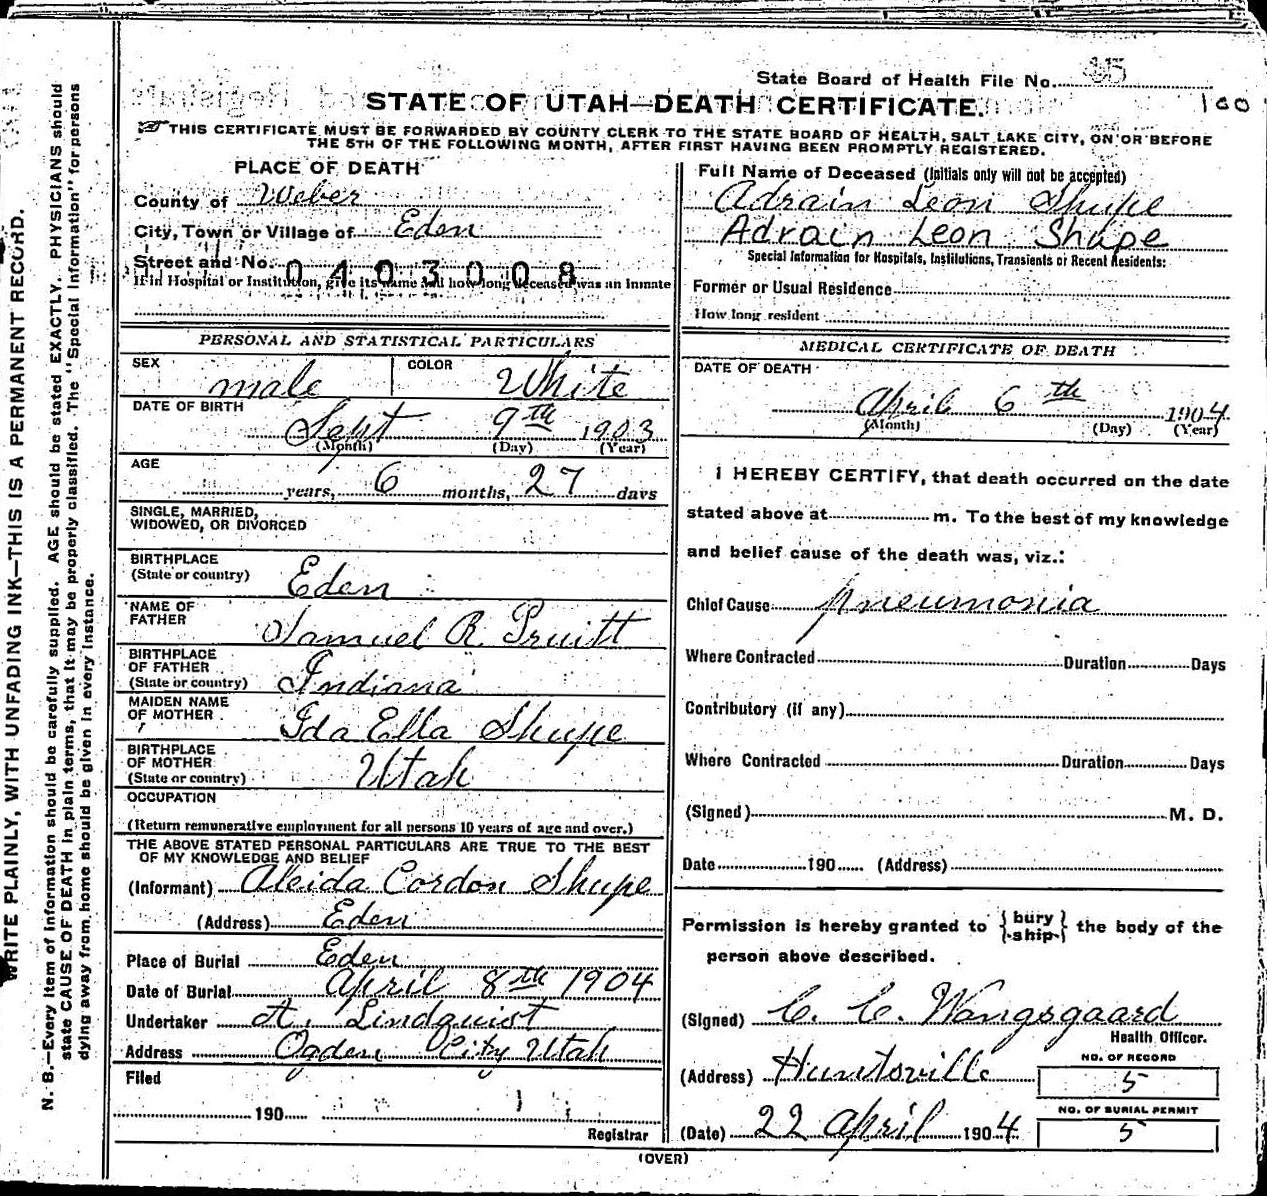 State Board of Health File No.
STATE OF UTAH—DEATH CERTIFICATE.
100
THIS CERTIFICATE MUST BE FORWARDED BY COUNTY CLERK TO THE STATE BOARD OF HEALTH, SALT LAKE CITY, ON OR BEFORE
THE 5TH OF THE FOLLOWING MONTH, AFTER FIRST HAVING BEEN PROMPTLY REGISTERED.
WRITE PLAINLY, WITH UNFADING INK—THIS IS A PERMANENT RECORD.
N. B.—Every item of information should be carefully supplied. AGE should be stated EXACTLY. PHYSICIANS should
state CAUSE OF DEATH in plain terms, that it may be properly classified. The "Special Information" for persons
dying away from home should be given in every instance.
PLACE OF DEATH
County of Weber
City, Town or Village of Eden
Street and No.
0403008
If in Hospital or Institution, give its name and how long deceased was an inmate
PERSONAL AND STATISTICAL PARTICULARS
SEX male COLOR White
DATE OF BIRTH
Sept 9th 1903
(Month) (Day) (Year)
AGE
years, 6 months, 27 days
SINGLE, MARRIED,
WIDOWED, OR DIVORCED
BIRTHPLACE
(State or country) Eden
NAME OF
FATHER Samuel R. Pruitt
BIRTHPLACE
OF FATHER
(State or country) Indiana
MAIDEN NAME
OF MOTHER Ida Ella Shupe
BIRTHPLACE
OF MOTHER
(State or country) Utah
OCCUPATION
(Return remunerative employment for all persons 10 years of age and over.)
THE ABOVE STATED PERSONAL PARTICULARS ARE TRUE TO THE BEST
OF MY KNOWLEDGE AND BELIEF
(Informant) Aleida Cordon Shupe
(Address) Eden
Place of Burial Eden
Date of Burial April 8th 1904
Undertaker A. Lindquist
Address Ogden City Utah
Filed
190
Registrar
Full Name of Deceased (Initials only will not be accepted)
Adrain Leon Shupe
Adrain Leon Shupe
Special Information for Hospitals, Institutions, Transients or Recent Residents:
Former or Usual Residence
How long resident
MEDICAL CERTIFICATE OF DEATH
DATE OF DEATH
April 6th 1904
(Month) (Day) (Year)
I HEREBY CERTIFY, that death occurred on the date
stated above at m. To the best of my knowledge
and belief cause of the death was, viz.:
Chief Cause pneumonia
Where Contracted Duration Days
Contributory (if any)
Where Contracted Duration Days
(Signed) M. D.
Date 190 (Address)
Permission is hereby granted to {bury
ship} the body of the
person above described.
(Signed) C. C. Wangsgaard
Health Officer.
(Address) Huntsville
NO. OF RECORD
5
NO. OF BURIAL PERMIT
5
(Date) 22 April 1904
(OVER)